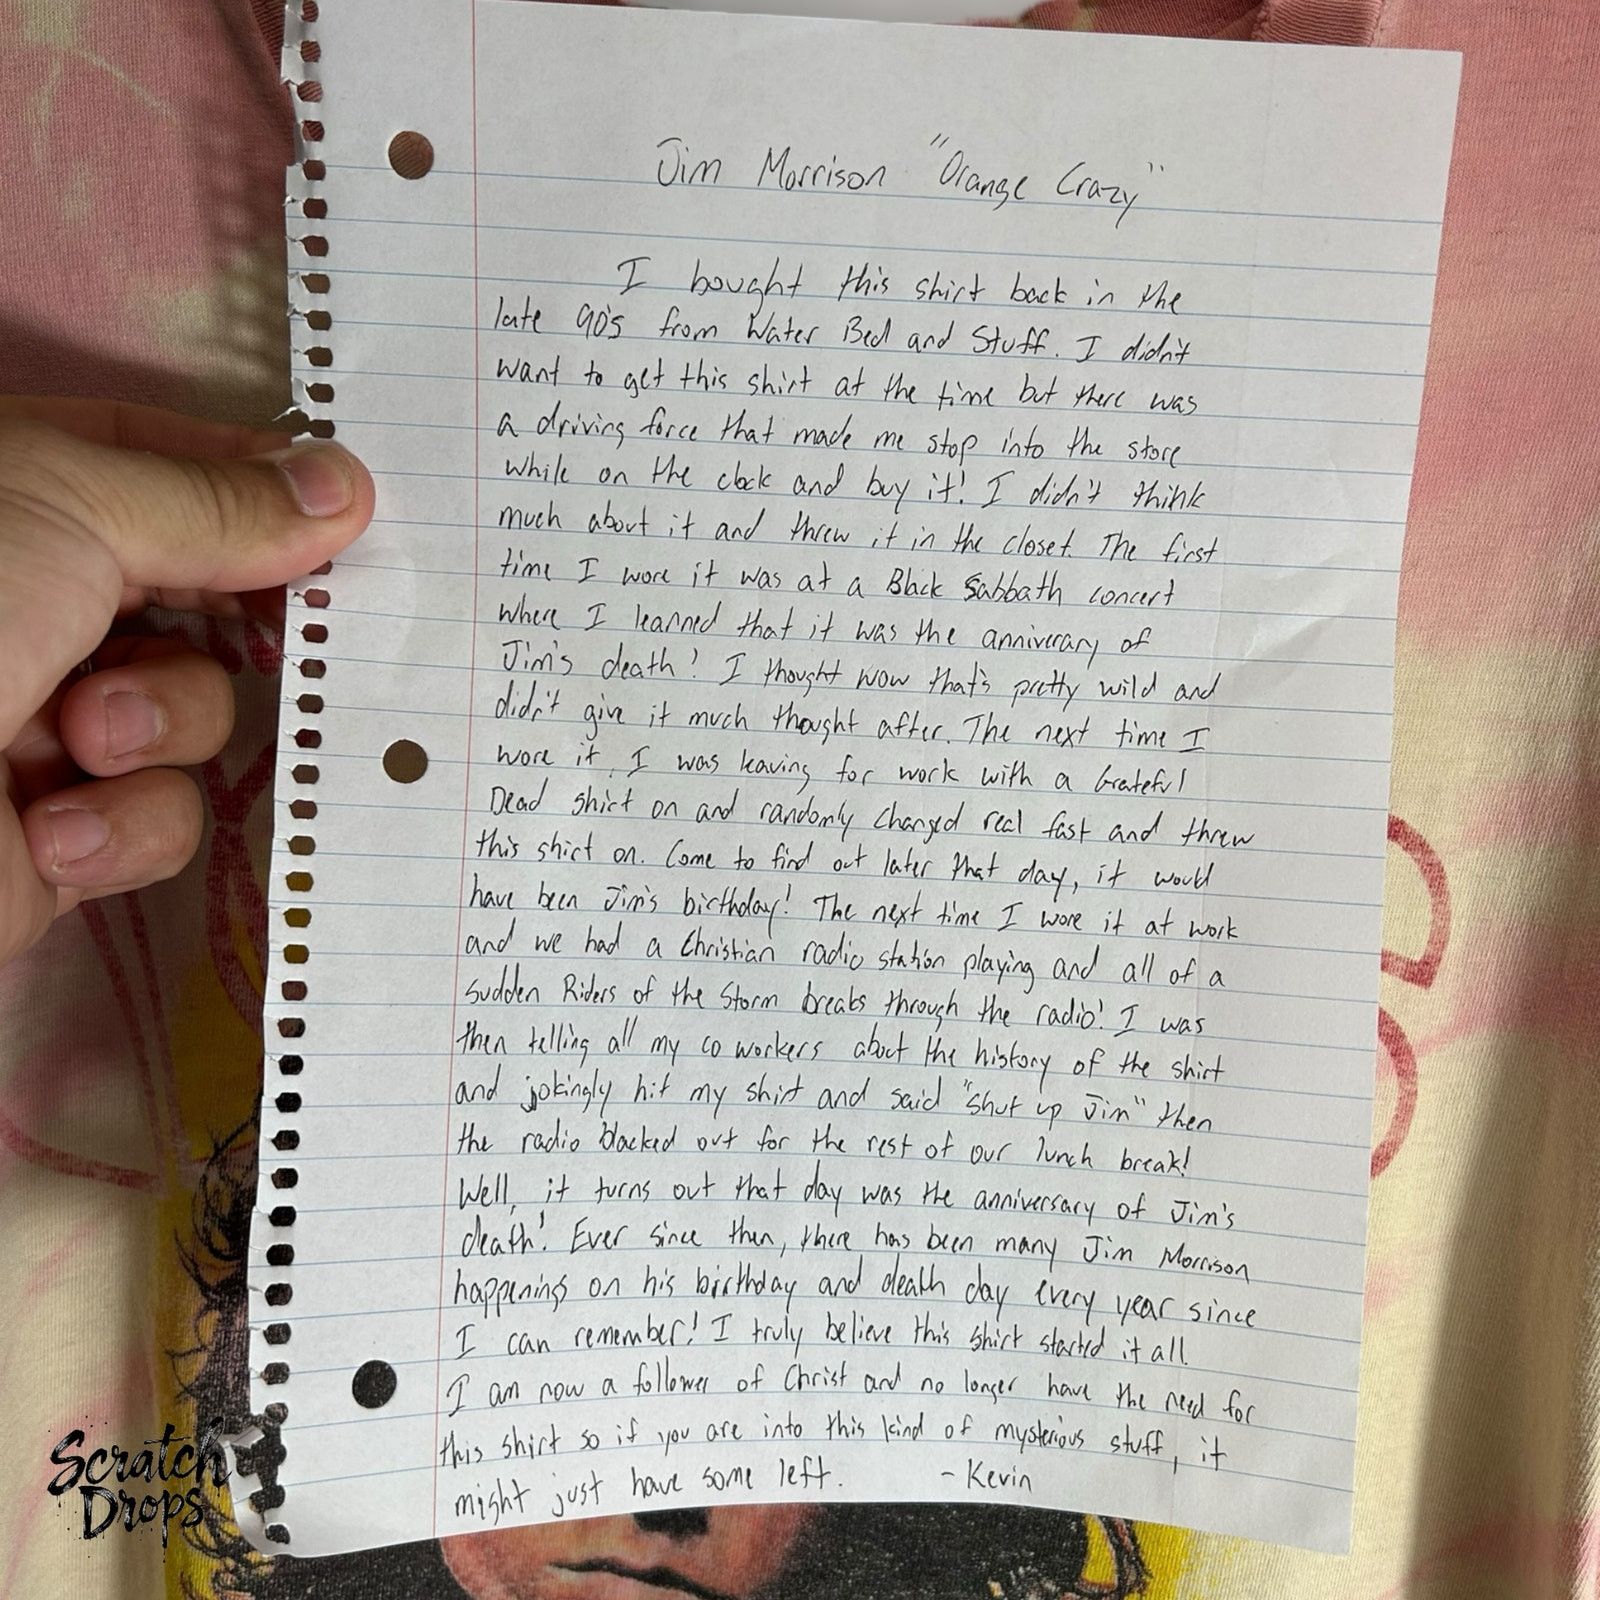 Jim Morrison "Orange Crazy"
I bought this shirt back in the
late 90's from Water Bed and Stuff. I didn't
want to get this shirt at the time but there was
a driving force that made me stop into the store
while on the clock and buy it! I didn't think
much about it and threw it in the closet. The first
time I wore it was at a Black Sabbath concert
where I learned that it was the anniverary of
Jim's death! I thought wow that's pretty wild and
didn't give it much thought after. The next time I
wore it, I was leaving for work with a Grateful
Dead shirt on and randomly changed real fast and threw
this shirt on. Come to find out later that day, it would
have been Jim's birthday! The next time I wore it at work
and we had a Christian radio station playing and all of a
sudden Riders of the Storm breaks through the radio! I was
then telling all my co workers about the history of the shirt
and jokingly hit my shirt and said "Shut up Jim" then
the radio blacked out for the rest of our lunch break!
Well, it turns out that day was the anniversary of Jim's
death! Ever since then, there has been many Jim Morrison
happenings on his birthday and death day every year since
I can remember! I truly believe this shirt started it all.
I am now a follower of Christ and no longer have the need for
this shirt so if you are into this kind of mysterious stuff, it
might just have some left. - Kevin
Scratch
Drops